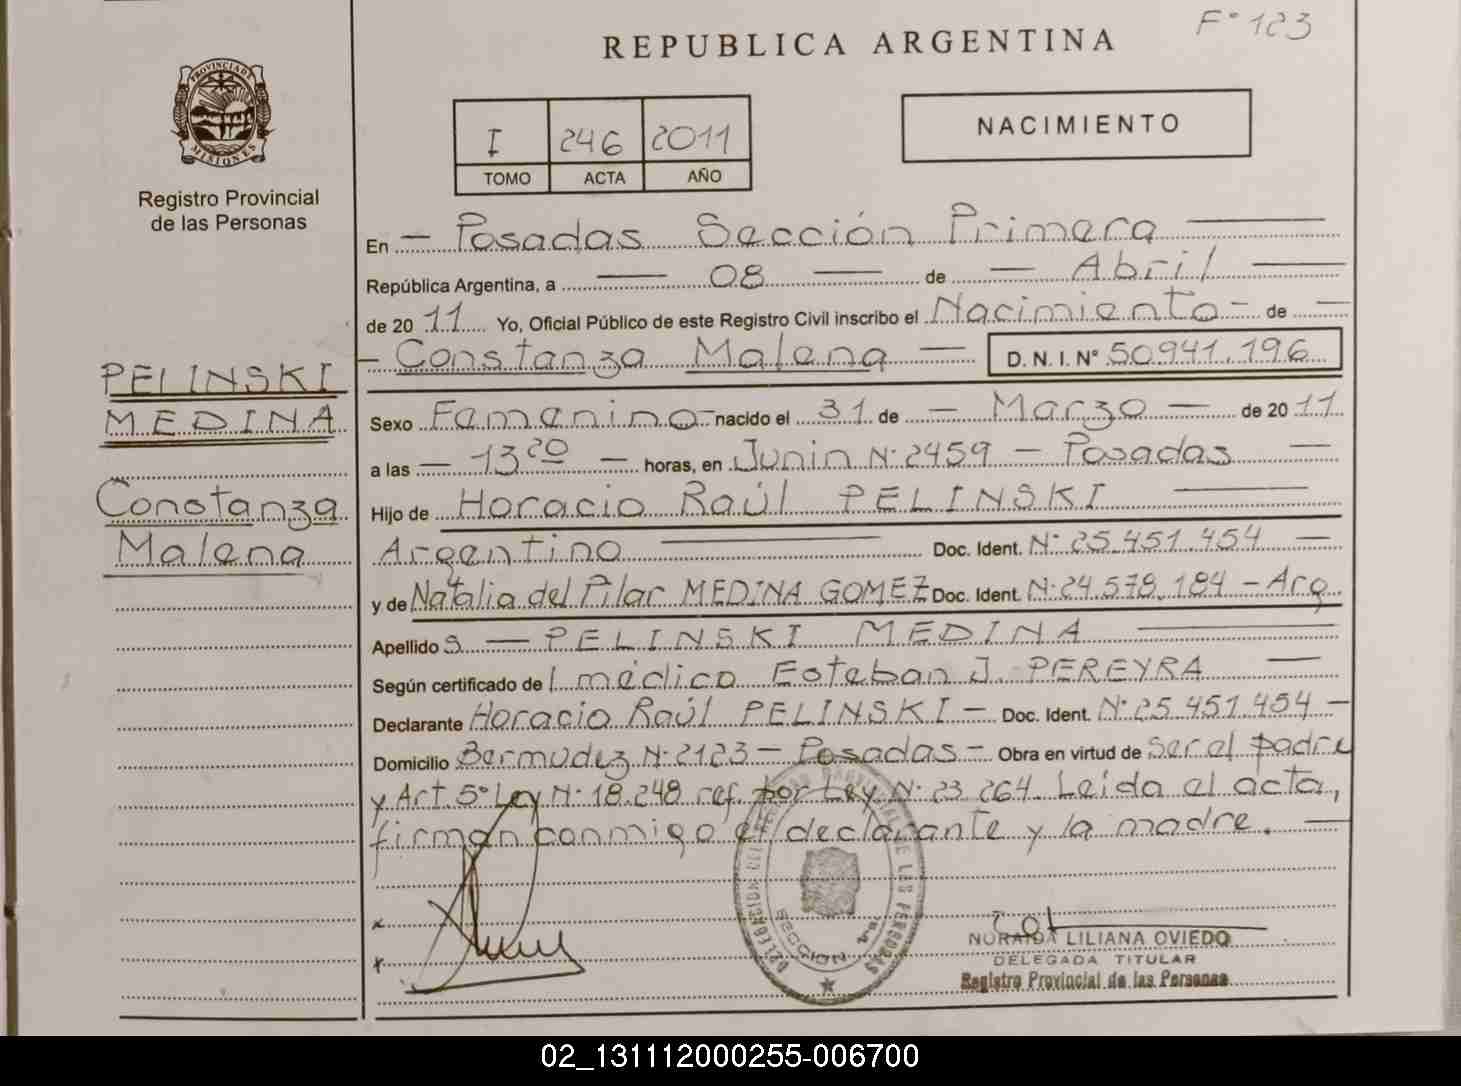 F° 123
REPUBLICA ARGENTINA
PROVINCIA DE
MISIONES
Registro Provincial
de las Personas
I 246 2011
TOMO ACTA AÑO
NACIMIENTO
En — Posadas Sección Primera —
República Argentina, a — 08 — de — Abril —
de 20 11 Yo, Oficial Público de este Registro Civil inscribo el Nacimiento — de —
— Constanza Malena — D. N. I. N° 50.941.196
PELINSKI
MEDINA
Constanza
Malena
Sexo Femenino — nacido el 31 de — Marzo — de 20 11
a las — 13 20 — horas, en Junin N° 2459 — Posadas —
Hijo de Horacio Raúl PELINSKI —
Argentino — Doc. Ident. N° 25.451.454 —
y de Natalia del Pilar MEDINA GOMEZ Doc. Ident. N° 24.578.184 — Arg.
Apellido s — PELINSKI MEDINA —
Según certificado de l médico Esteban J. PEREYRA —
Declarante Horacio Raúl PELINSKI — Doc. Ident. N° 25.451.454 —
Domicilio Bermudez N° 2123 — Posadas — Obra en virtud de Ser el padre
y Art. 5° Ley N° 18.248 ref. por Ley N° 23.264. Leída el acta,
firman conmigo el declarante y la madre. —
DELEGACION DEL REGISTRO PROVINCIAL DE LAS PERSONAS
SECCION 1ra.
NORAIDA LILIANA OVIEDO
DELEGADA TITULAR
Registro Provincial de las Personas
02_131112000255-006700